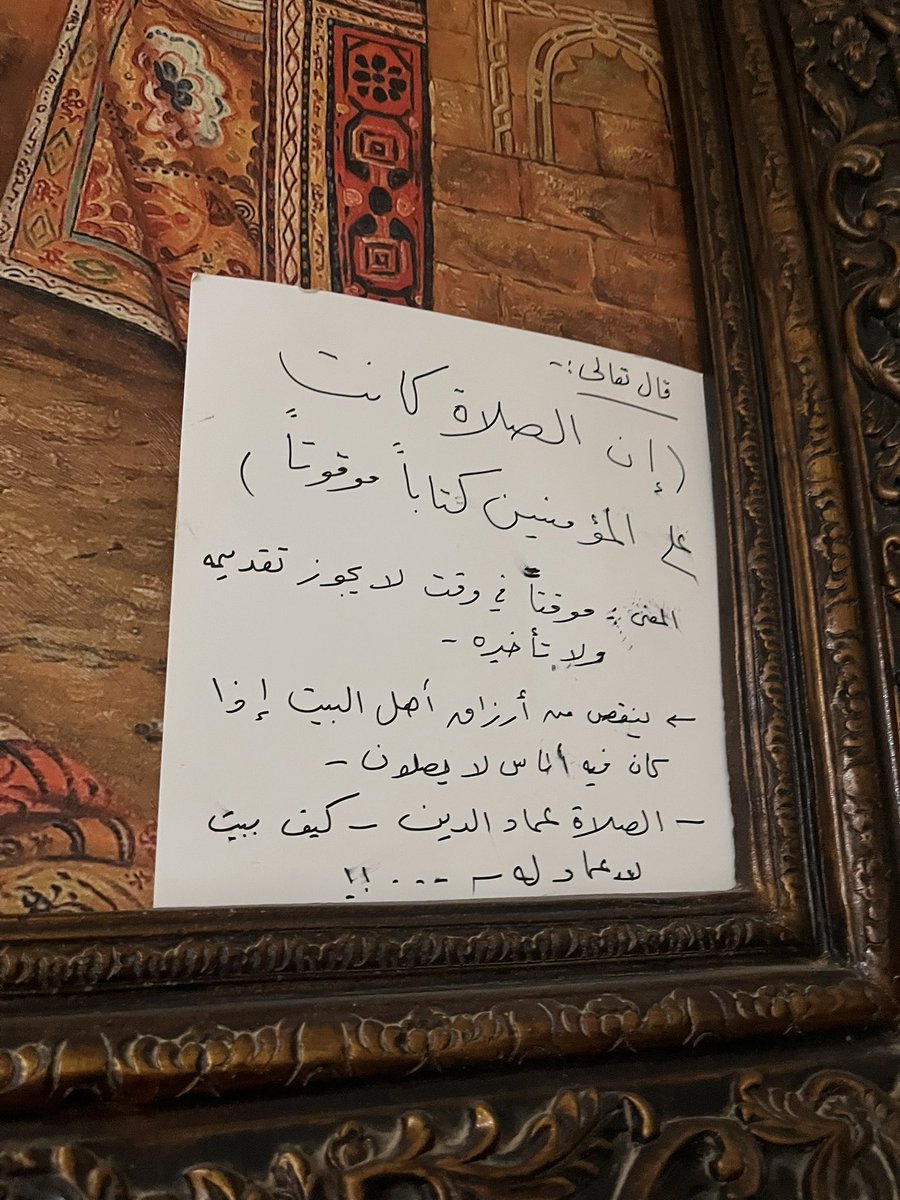 قال تعالى :-
(إن الصلاة كانت
على المؤمنين كتاباً موقوتاً )
المعنى : موقتاً في وقت لا يجوز تقديمه
ولا تأخيره -
← ينقص من أرزاق أهل البيت إذا
كان فيه أناس لا يصلون -
- الصلاة عماد الدين - كيف ببيت
لا عماد له - ... !!